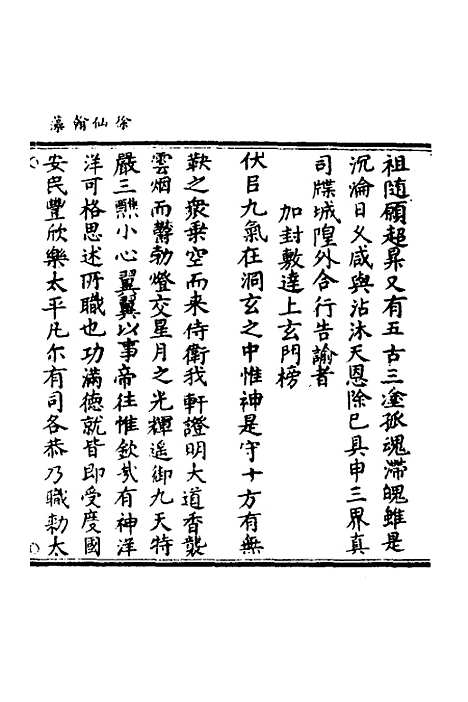 徐仙翰藻
祖随願超昇又有五古三塗孤魂滯魄雖是
沉淪日乆咸與沾沐天恩除已具申三界真
司牒城隍外合行告諭者
加封敷達上玄門榜
伏㠯九氣在洞玄之中惟神是守十方有無
鞅之衆乗空而来侍衛我軒證明大道香襲
雲烟而欝勃燈交星月之光輝遥御九天特
嚴三醮小心翼翼以事帝往惟欽㢤有神洋
洋可格思述所職也功滿徳就皆即受度國
安民豐欣樂太平凡尓有司各恭乃職勅太